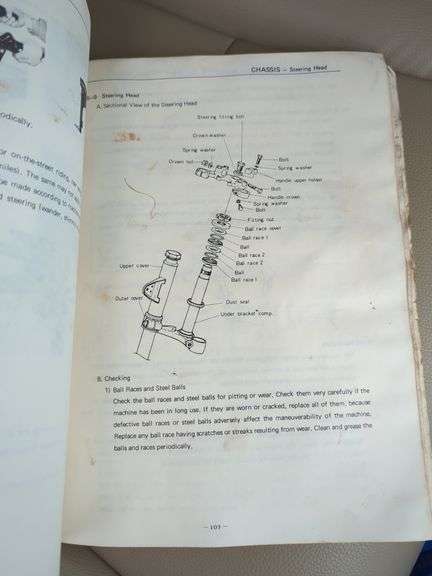 odically.
or on-the-street riding, the
miles). The same may
be made according to
d steering (wander,
CHASSIS – Steering Head
Steering Head
A. Sectional View of the Steering Head
Steering fitting bolt
Crown washer
Spring washer
Crown nut
Bolt
Spring washer
Handle upper holder
Bolt
Handle crown
Spring washer
Bolt
Fitting nut
Ball race cover
Ball race 1
Ball
Ball race 2
Ball race 2
Ball
Ball race 1
Upper cover
Outer cover
Dust seal
Under bracket comp.
B. Checking
1) Ball Races and Steel Balls
Check the ball races and steel balls for pitting or wear. Check them very carefully if the
machine has been in long use. If they are worn or cracked, replace all of them, because
defective ball races or steel balls adversely affect the maneuverability of the machine.
Replace any ball race having scratches or streaks resulting from wear. Clean and grease the
balls and races periodically.